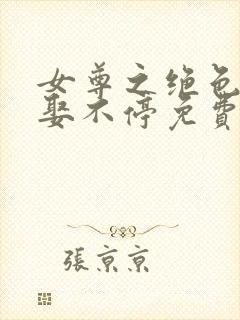 女尊之绝色
娶不停免費
張京京